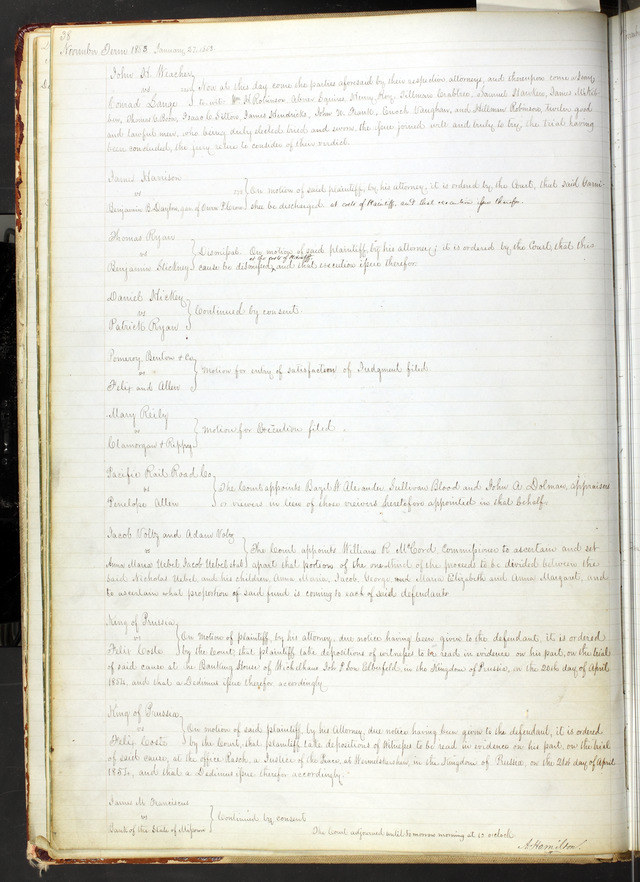 38
November Term 1853 January 27. 1853
John H. Weacker
vs
Conrad Lange
Now at this day come the parties aforesaid by their respective attorneys, and thereupon come a Jury,
to wit: Wm H Robinson, Abner Squires, Henry Kerz, Tillman Crabtree, Samuel Hawken, James
Thomas C. Boon, Isaac C. James Hendricks, John W. Frank, Enoch Vaughan, and Hillman Robinson, twelve good
and lawful men, who being duly elected tried and sworn, the issue joined well and truly to try, the trial having
been concluded, the jury retire to consider of their verdict.
James Harrison
vs
Benjamin B. Dayton,
On motion of said plaintiff, by his attorney, it is ordered by the Court, that said
shee be discharged at costs of Plaintiff, and that execution issue therefor.
Thomas Ryan
vs
Benjamin Stickney
Dismissed. On motion of said plaintiff, by his attorney; it is ordered by the Court, that this
at the costs of Plaintiff
cause be dismissed, and that execution issue therefor.
Daniel Hickey
vs
Patrick Ryan
Continued by consent.
Pomeroy, Benton & Co
vs
Felix and Allen
Motion for entry of satisfaction of Judgment filed
Mary Reily
vs
Clamorgan & Rippey
Motion for Execution filed.
Pacific Rail Road Co
vs
Penelope Allen
The Court appoints Bazil W. Alexander Sullivan Blood and John A Dolman, appraisers
or viewers in lieu of those viewers heretofore appointed in that behalf.
Jacob Volby and Adam Volz
vs
Anna Maria Uebel Jacob Uebel et al
The Court appoints William R. McCord Commissioner to ascertain and set
apart that portions of the one-third of the proceeds to be divided between the
said Nicholas Uebel, and his children, Anna Maria, Jacob, George, and Maria Elizabeth and Anna Margaret, and
to ascertain what proportion of said fund is coming to each of said defendants
King of Prussia
vs
Felix Coste
On motion of plaintiff, by his attorney, due notice having been given to the defendant, it is ordered
by the Court, that plaintiff take depositions of witnesses to be read in evidence on his part, on the trial
of said cause at the Banking House of Wichelhaus Joh P. Son Elberfeld, in the Kingdom of Prussia, on the 20th day of April
1854, and that a Dedimus issue therefor accordingly
King of Prussia
vs
Felix Coste
On motion of said plaintiff, by his Attorney, due notice having been given to the defendant, it is ordered
by the Court, that plaintiff take depositions of Witnesses to be read in evidence on his part, on the trial
of said cause, at the office Rasch, a Justice of the Peace, at in the Kingdom of Prussia, on the 21st day of April
1854, and that a Dedimus issue therefor accordingly.
James M. Franciscus
vs
Bank of the State of Missouri
Continued by consent
The Court adjourned until tomorrow morning at 10 o'clock
A. Hamilton.